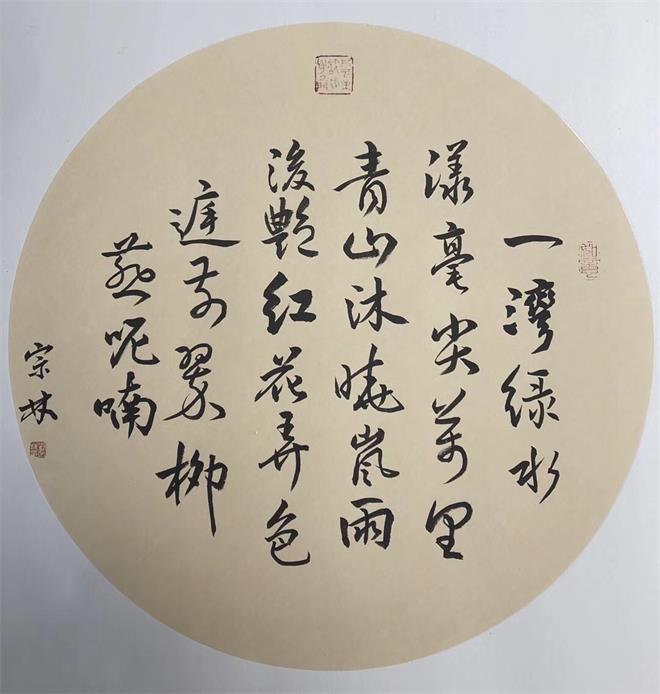 一灣绿水
漾毫尖萬里
青山沐曉嵐雨
後艷红花弄色
庭前翠柳
燕呢喃
宗林